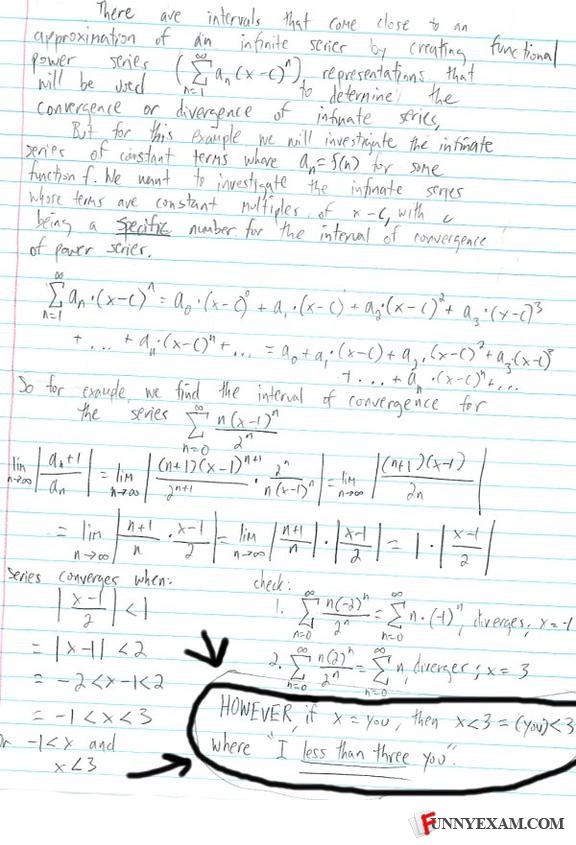 There are intervals that come close to an
approximation of an infinite series by creating functional
power series (∑_{n=1}^{∞} a_n(x-c)^n), representations that
will be used to determine the
convergence or divergence of infinate series.
But for this example we will investigate the infinate
series of constant terms where a_n = f(n) for some
function f. We want to investigate the infinate series
whose terms are constant multiples of x-c, with c
being a specific number for the interval of convergence
of power series.
∑_{n=1}^{∞} a_n·(x-c)^n = a_0·(x-c)^0 + a_1·(x-c) + a_2·(x-c)^2 + a_3·(x-c)^3
+ ... + a_n·(x-c)^n + ... = a_0 + a_1·(x-c) + a_2·(x-c)^2 + a_3·(x-c)^3
+ ... + a_n·(x-c)^n + ...
So for example, we find the interval of convergence for
the series ∑_{n=0}^{∞} n(x-1)^n / 2^n
lim_{n→∞} |a_n+1 / a_n| = lim_{n→∞} |(n+1)(x-1)^{n+1} / 2^{n+1} · 2^n / n(x-1)^n| = lim_{n→∞} |(n+1)(x-1) / 2n|
= lim_{n→∞} |n+1 / n · x-1 / 2| = lim_{n→∞} |n+1 / n| · |x-1 / 2| = 1 · |x-1 / 2|
Series converges when:
|x-1 / 2| < 1
= |x-1| < 2
= -2 < x-1 < 2
= -1 < x < 3
Or -1 < x and
x < 3
check:
1. ∑_{n=0}^{∞} n(-2)^n / 2^n = ∑_{n=0}^{∞} n·(-1)^n, diverges; x = -1
2. ∑_{n=0}^{∞} n(2)^n / 2^n = ∑_{n=0}^{∞} n, diverges; x = 3
HOWEVER, if x = you, then x<3 = (you)<3
where "I less than three you".
FUNNYEXAM.COM